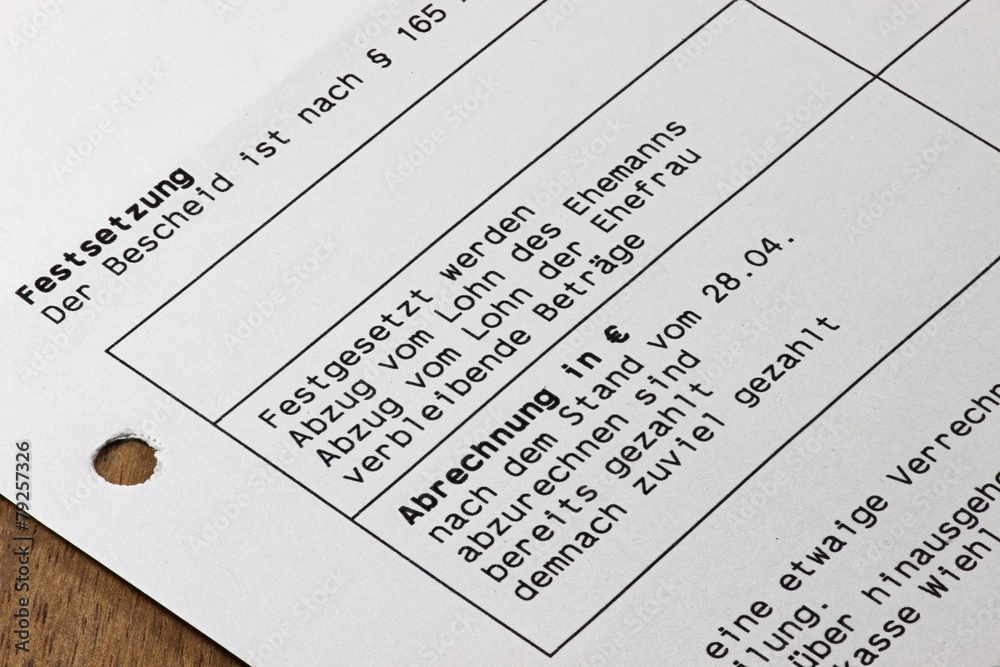 Festsetzung
Der Bescheid ist nach § 165
Festgesetzt werden
Abzug vom Lohn des Ehemanns
Abzug vom Lohn der Ehefrau
verbleibende Beträge
Abrechnung in €
nach dem Stand vom 28.04.
abzurechnen sind
bereits gezahlt
demnach zuviel gezahlt
eine etwaige Verrechn
ilung.
über hinausgehe
kasse Wiehl
Adobe Stock | #79257326